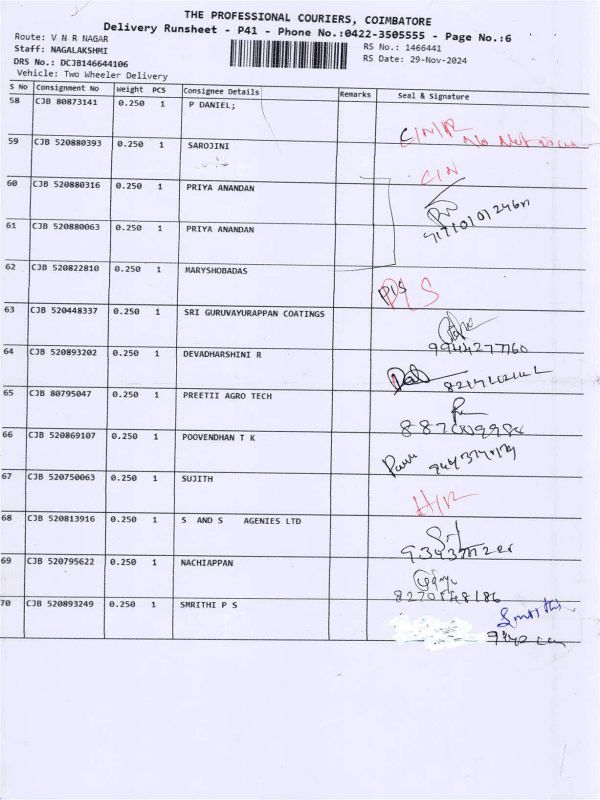 THE PROFESSIONAL COURIERS, COIMBATORE
Delivery Runsheet - P41 - Phone No.:0422-3505555 - Page No.:6
Route: V N R NAGAR
Staff: NAGALAKSHMI
DRS No.: DCJB146644106
Vehicle: Two Wheeler Delivery
RS No.: 1466441
RS Date: 29-Nov-2024
S No Consignment No Weight PCS Consignee Details Remarks Seal & Signature
58 CJB 80873141 0.250 1 P DANIEL;
59 CJB 520880393 0.250 1 SAROJINI C/N
60 CJB 520880316 0.250 1 PRIYA ANANDAN
61 CJB 520880063 0.250 1 PRIYA ANANDAN
62 CJB 520822810 0.250 1 MARYSHOBADAS P/S
63 CJB 520448337 0.250 1 SRI GURUVAYURAPPAN COATINGS
9944277760
64 CJB 520893202 0.250 1 DEVADHARSHINI R
65 CJB 80795047 0.250 1 PREETII AGRO TECH
66 CJB 520869107 0.250 1 POOVENDHAN T K
67 CJB 520750063 0.250 1 SUJITH
68 CJB 520813916 0.250 1 S AND S AGENIES LTD
69 CJB 520795622 0.250 1 NACHIAPPAN
8270548186
70 CJB 520893249 0.250 1 SMRITHI P S